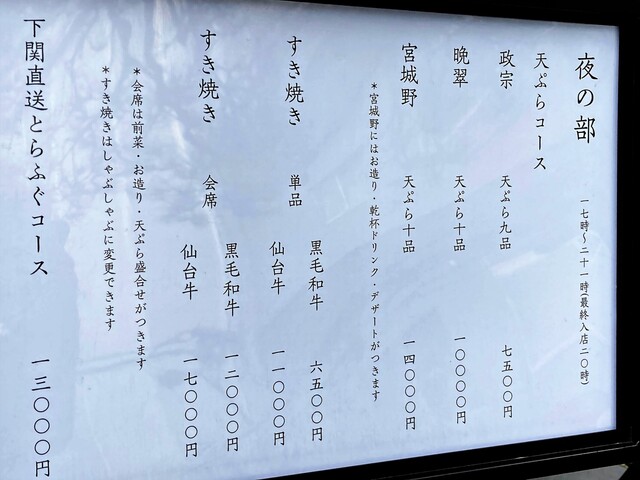 夜の部
一七時～二十一時(最終入店二〇時)
天ぷらコース
政宗 天ぷら九品 七五〇〇円
晩翠 天ぷら十品 一〇〇〇〇円
宮城野 天ぷら十品 一四〇〇〇円
＊宮城野にはお造り・乾杯ドリンク・デザートがつきます
すき焼き 単品 黒毛和牛 六五〇〇円
仙台牛 一一〇〇〇円
すき焼き 会席 黒毛和牛 一二〇〇〇円
仙台牛 一七〇〇〇円
＊会席は前菜・お造り・天ぷら盛合せがつきます
＊すき焼きはしゃぶしゃぶに変更できます
下関直送とらふぐコース 一三〇〇〇円